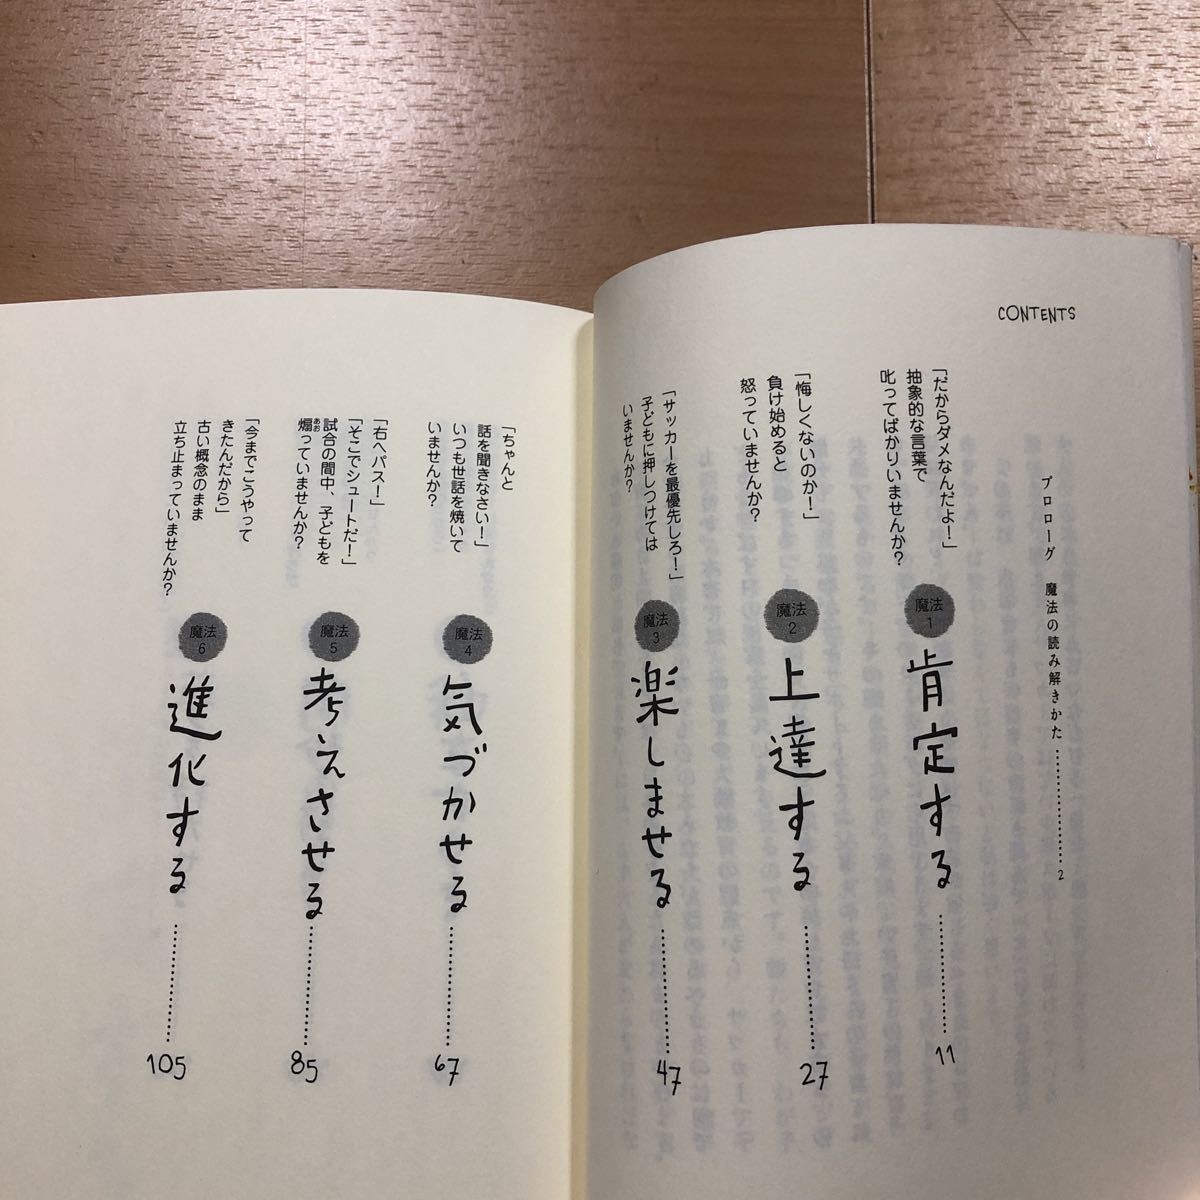 CONTENTS
プロローグ　魔法の読み解きかた…………………2
「だからダメなんだよ!」
抽象的な言葉で
叱ってばかりいませんか?
魔法
1
肯定する…………………11
「悔しくないのか!」
負け始めると
怒っていませんか?
魔法
2
上達する…………………27
「サッカーを最優先しろ!」
子どもに押しつけては
いませんか?
魔法
3
楽しませる…………………47
「ちゃんと
話を聞きなさい!」
いつも世話を焼いて
いませんか?
魔法
4
気づかせる…………………67
「右へパス!」
「そこでシュートだ!」
試合の間中、子どもを
煽っていませんか?
あお
魔法
5
考えさせる…………………85
「今までこうやって
きたんだから」
古い概念のまま
立ち止まっていませんか?
魔法
6
進化する…………………105